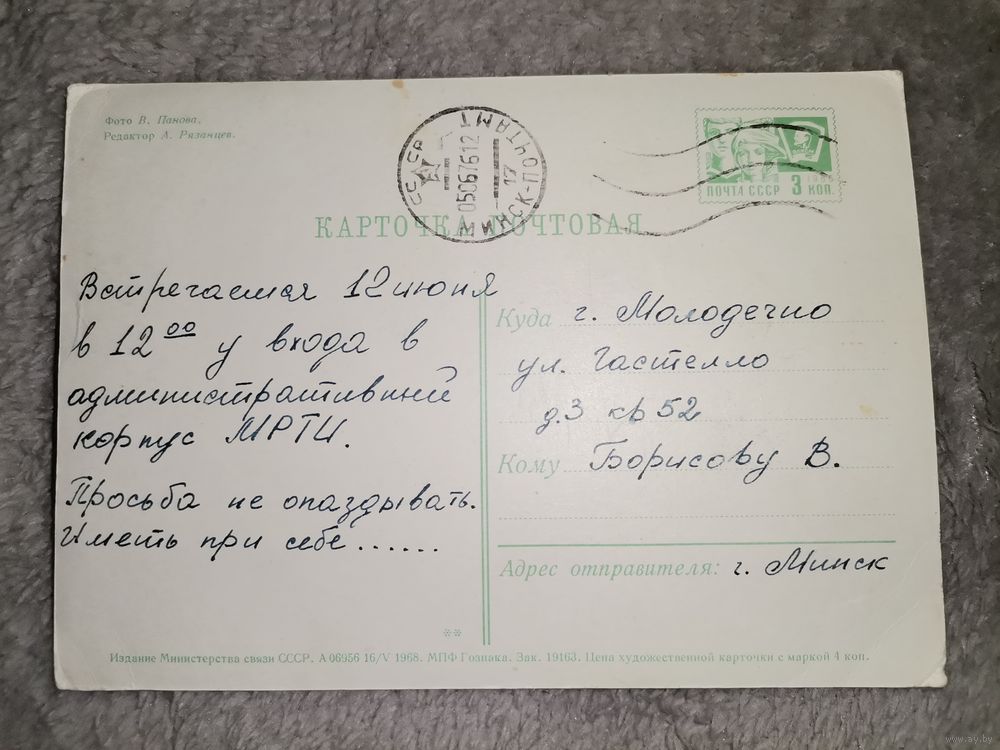 Фото В. Панова.
Редактор А. Рязанцев.
СССР
МИНСК-ПОЧТАМТ
05067612
17
ПОЧТА СССР 3 КОП.
1966
КАРТОЧКА ПОЧТОВАЯ
Встречаемся 12 июня
в 12 00 у входа в
административный
корпус МРТИ.
Просьба не опаздывать.
Иметь при себе......
Куда г. Молодечно
ул. Гастелло
д.3 кв 52
Кому Борисову В.
Адрес отправителя: г. Минск
**
Издание Министерства связи СССР. А 06956 16/V 1968. МПФ Гознака. Зак. 19163. Цена художественной карточки с маркой 4 коп.
www.ay.by